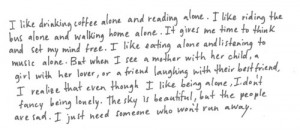 I like drinking coffee alone and reading alone. I like riding the
bus alone and walking home alone. It gives me time to think
and set my mind free. I like eating alone and listening to
music alone. But when I see a mother with her child, a
girl with her lover, or a friend laughing with their best friend,
I realize that even though I like being alone, I don't
fancy being lonely. The sky is beautiful, but the people
are sad. I just need someone who won't run away.